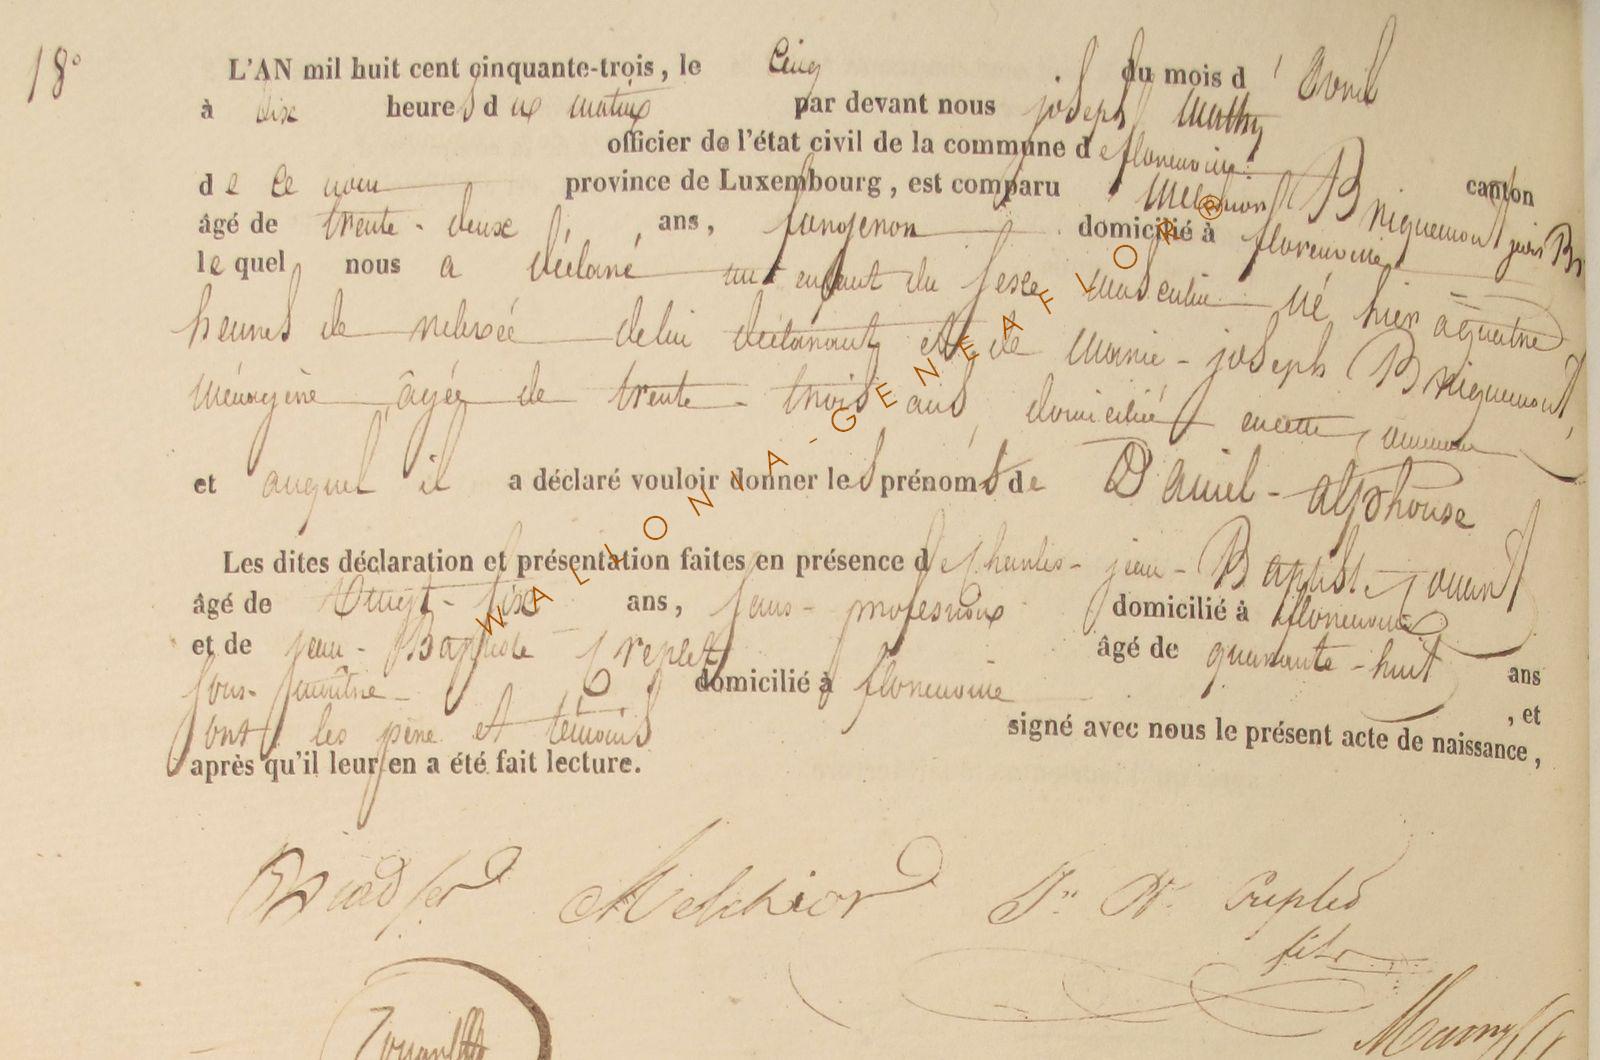 18°
L'AN mil huit cent cinquante-trois, le Cinq du mois d'avril
à dix heures du matin par devant nous joseph Mathy
officier de l'état civil de la commune de florenville canton
de ce nom province de Luxembourg, est comparu Melchior Briquemont
âgé de trente-deux ans, domicilié à florenville
le quel nous a déclaré un enfant du sexe masculin né hier à quatre
heures de relevée de lui déclarant et de Marie-joseph Briquemont
ménagère âgée de trente-trois ans, domiciliée en cette commune
et auquel il a déclaré vouloir donner les prénoms de Daniel-alphonse
Les dites déclaration et présentation faites en présence de Charles-jean-Baptiste
âgé de vingt-six ans, sans-profession domicilié à florenville
et de jean-Baptiste âgé de quarante-huit ans
domicilié à florenville, et
ont les père et témoins signé avec nous le présent acte de naissance,
après qu'il leur en a été fait lecture.
Melchior
Jn Bte
fils
WALLONIA-GENEAFLOR®